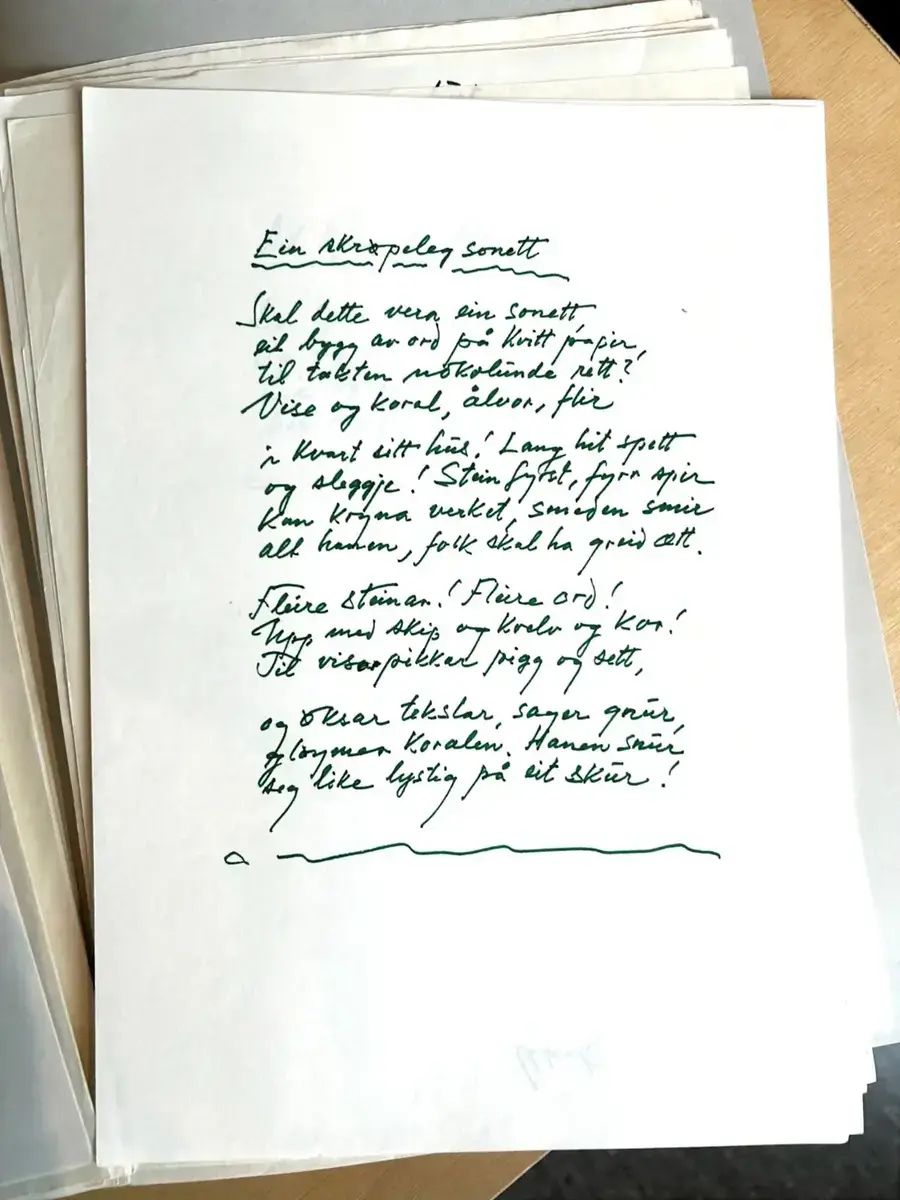 Ein skrøpeleg sonett
Skal dette vera ein sonett,
eit bygg av ord på kvitt papir,
til takten nokolunde rett?
Vise og koral, ålvor, flir
i kvart sitt hus! Lang hit spett
og sleggje! Stein fyrst, fyrr spir
kan kryna verket, smeden smir
alt hanen, folk skal ha greid ætt.
Fleire steinar! Fleire ord!
Upp med skip og kvelv og kor!
Til visor pikkar pigg og sett,
og øksar tekslar, sager gnur,
gløymer koralen. Hanen snur
seg like lystig på eit skur!